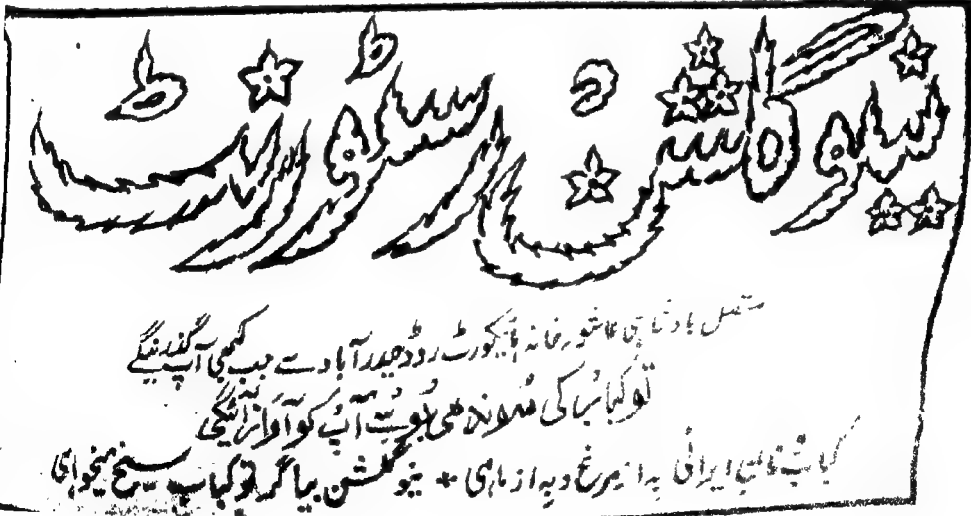 نیو گلشن رسٹورنٹ
متصل بادشاہی عاشور خانہ ہائیکورٹ روڈ حیدرآباد سے جب کبھی آپ گذرینگے
تو کبابُ کی سوندھی بُو آپ کو آواز دیگی
کباب ایرانی پہ از مرغ و پہ از ماہی + نیو گلشن بیا گر تو کباب سیخ میخواہی